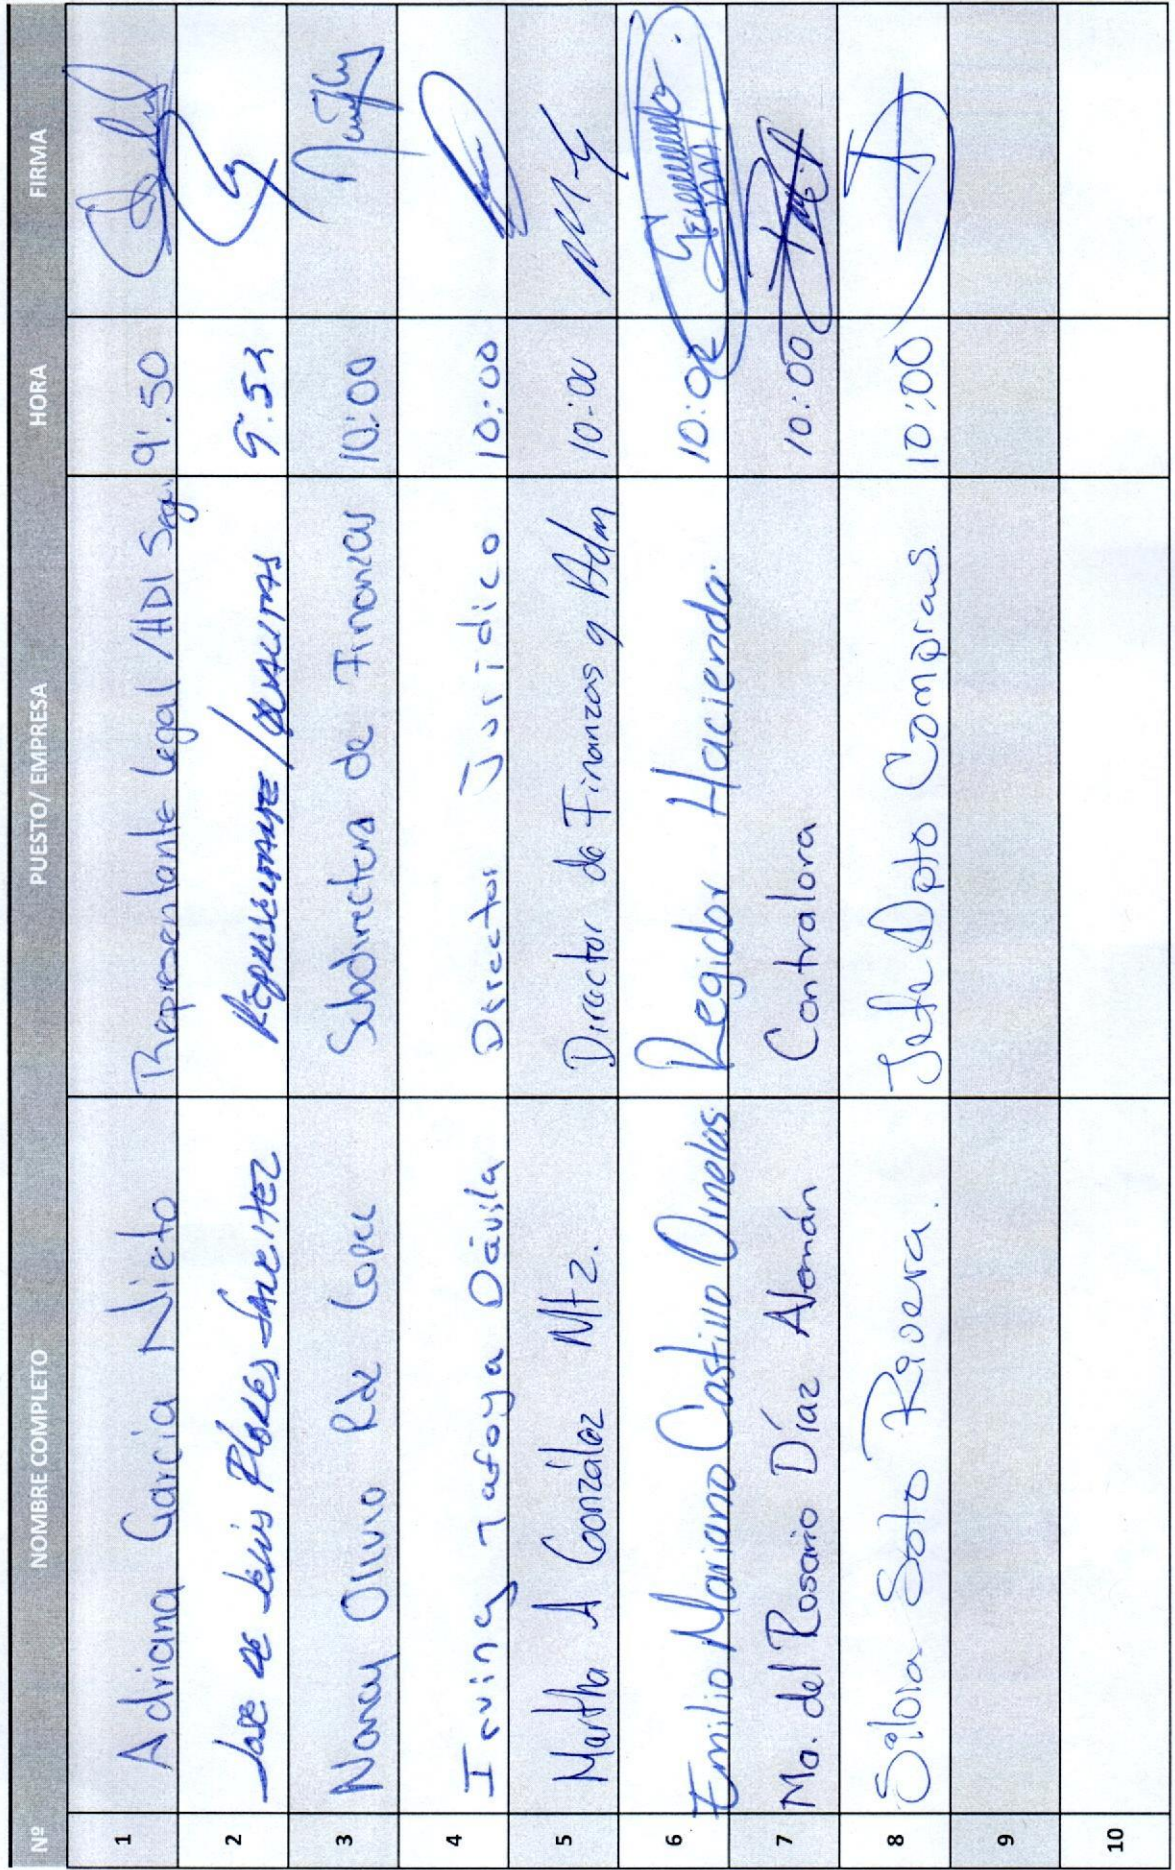 Nº NOMBRE COMPLETO PUESTO/ EMPRESA HORA FIRMA
1 Adriana García Nieto Representante Legal /HDI Seg. 9:50
2 José de Jesús Flores Representante / Qualitas 9:52
3 Nancy Olivia Rdz Lopez Subdirectora de Finanzas 10:00
4 Irving Tafoya Dávila Director Jurídico 10:00
5 Martha A González Mtz. Director de Finanzas y Adm 10:00
6 Emilio Mariano Castillo Ornelas Regidor Hacienda.
7 Ma. del Rosario Díaz Alemán Contralora 10:00
8 Silvia Soto Rivera. Jefe Dpto Compras. 10:00
9
10